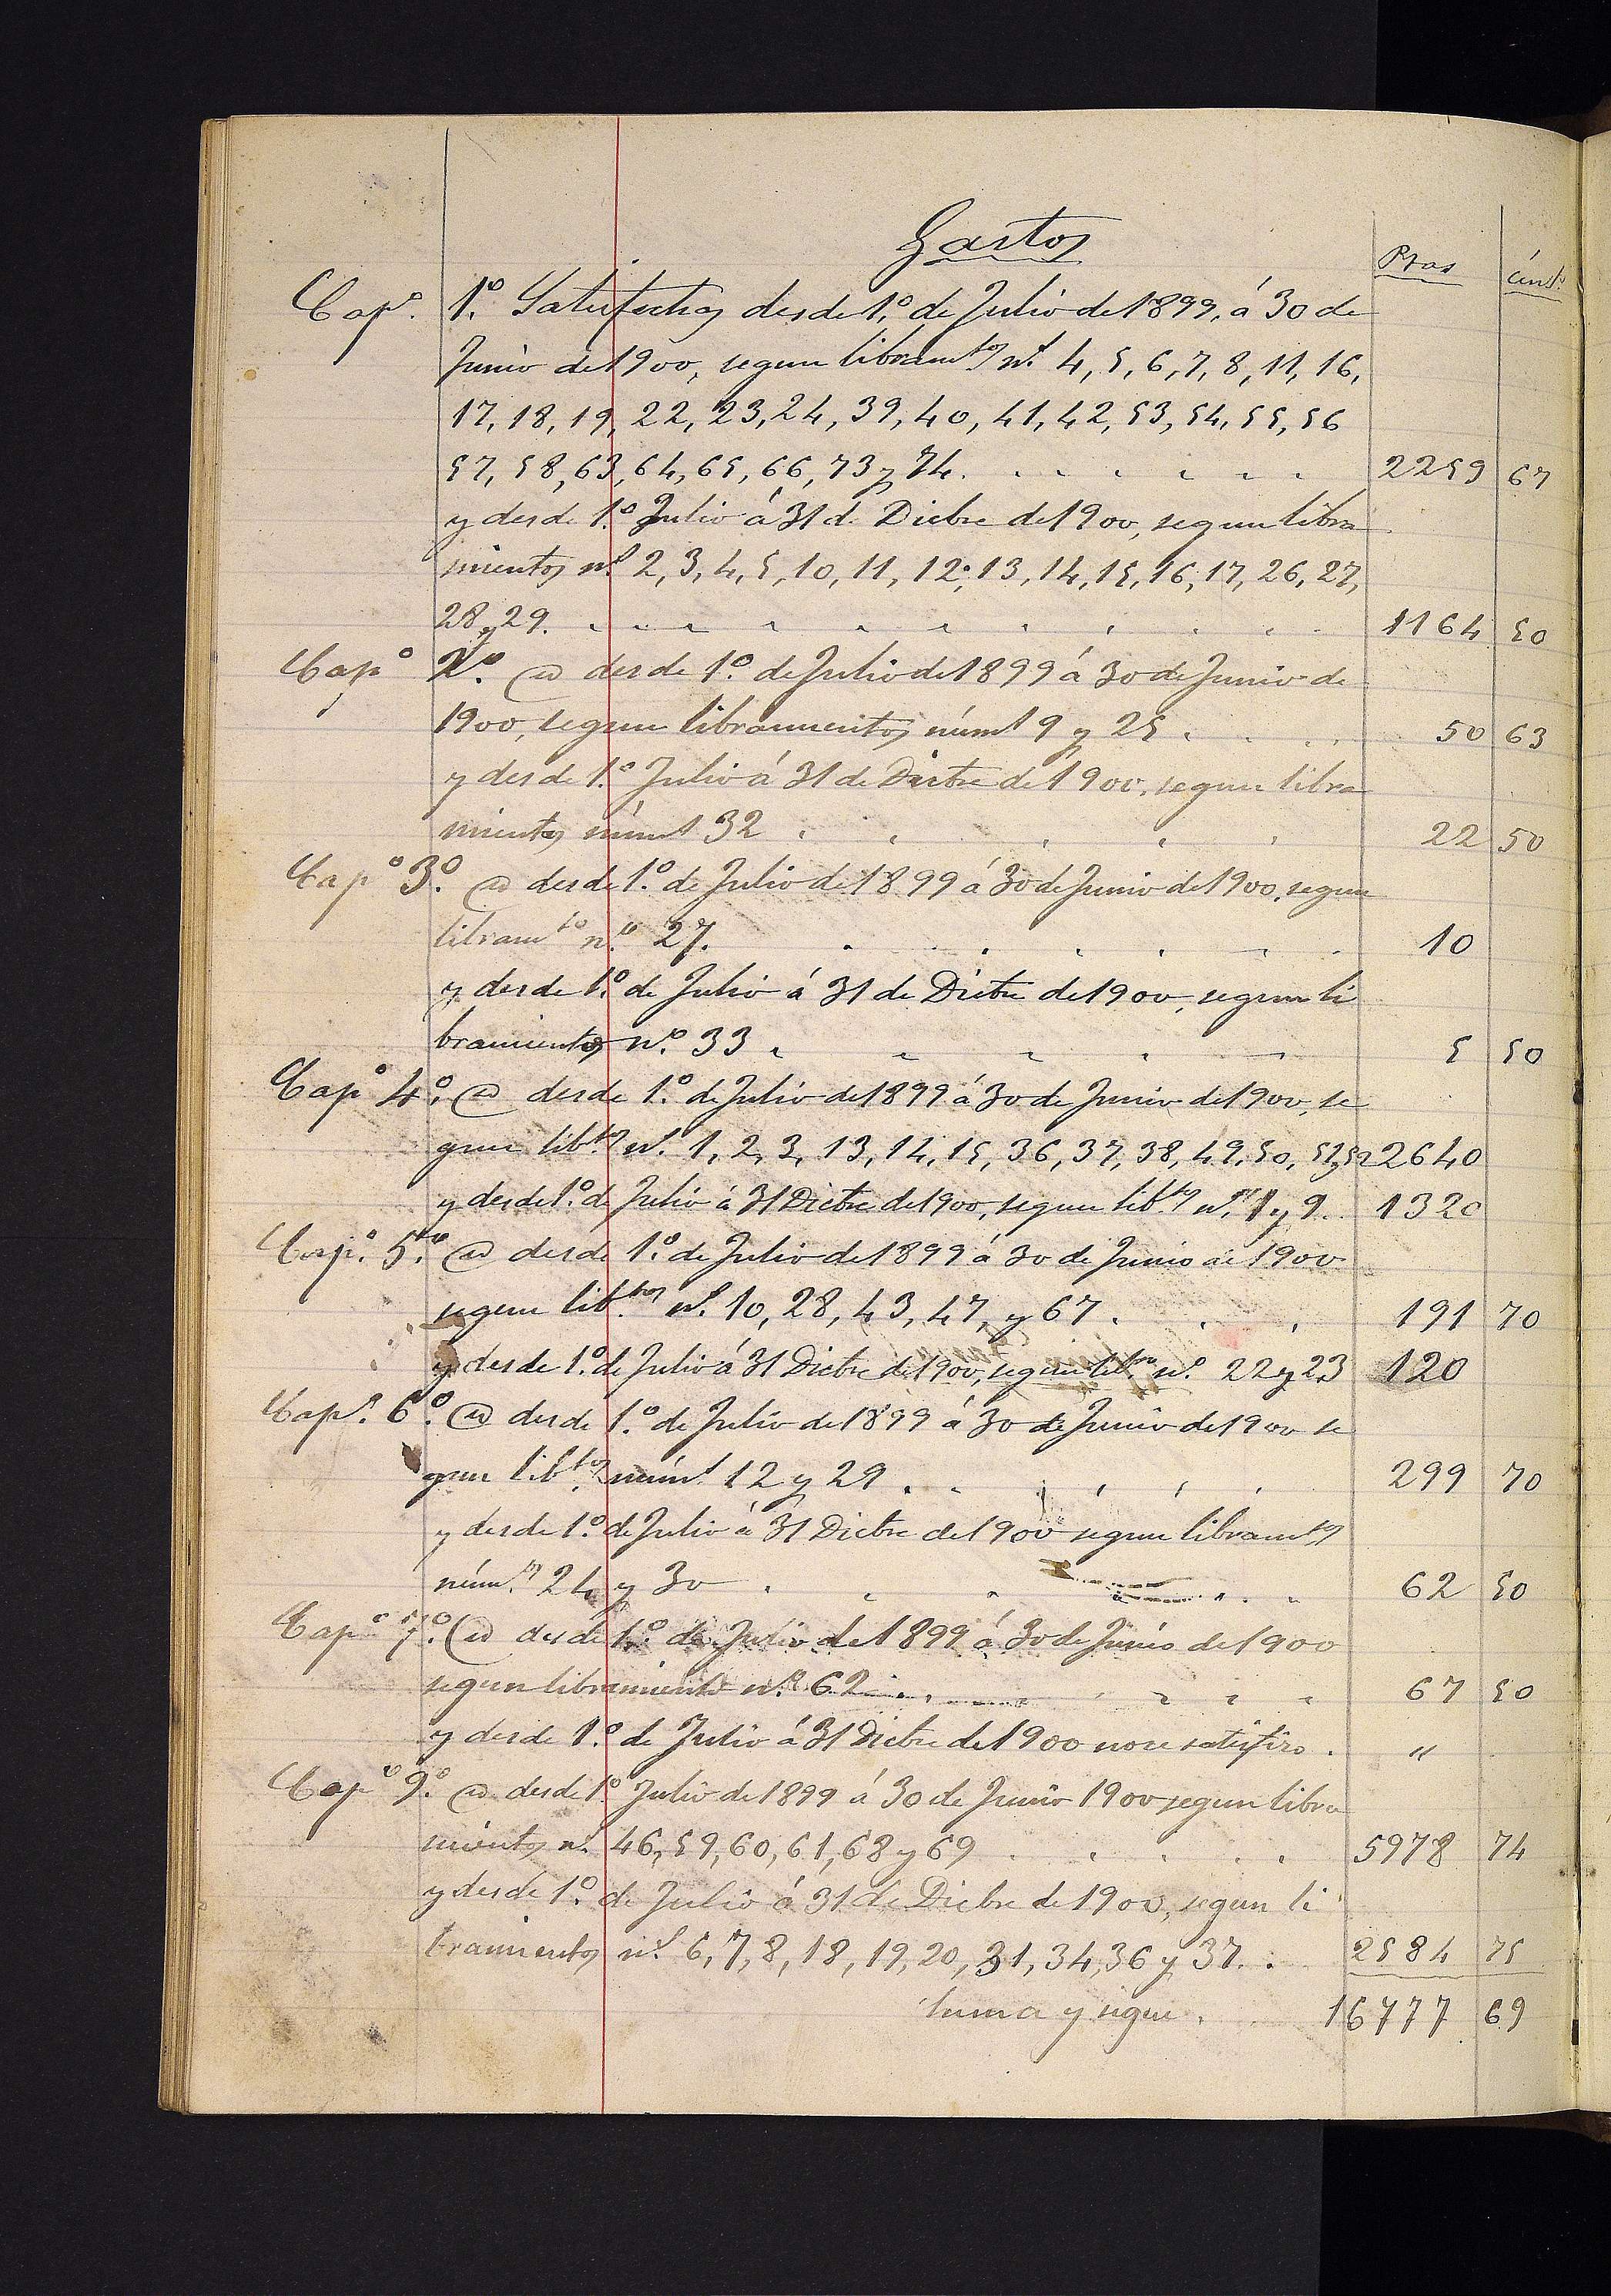 Gastos
Ptas cént.s
Cap.º 1.º Satisfechos desde 1.º de Julio de 1899, á 30 de
Junio de 1900, segun libram.tos n.s 4, 5, 6, 7, 8, 11, 16,
17, 18, 19, 22, 23, 24, 39, 40, 41, 42, 53, 54, 55, 56
57, 58, 63, 64, 65, 66, 73 y 74. 2259 67
y desde 1.º Julio á 31 de Dicbre de 1900, segun libra
mientos n.s 2, 3, 4, 5, 10, 11, 12, 13, 14, 15, 16, 17, 26, 27,
28 y 29. 1164 50
Capº 2.º @ desde 1.º de Julio de 1899 á 30 de Junio de
1900, segun libramientos núms 9 y 25 . 50 63
y desde 1.º Julio á 31 de Dicbre de 1900, segun libra
mientos núms 32 22 50
Capº 3.º @ desde 1.º de Julio de 1899 á 30 de Junio de 1900, segun
libramto n.º 27. 10
y desde 1.º de Julio á 31 de Dicbre de 1900, segun li
bramientos n.º 33 5 50
Capº 4.º @ desde 1.º de Julio de 1899 á 30 de Junio de 1900, se
gun lib.tos n.s 1, 2, 3, 13, 14, 15, 36, 37, 38, 49, 50, 51 y 52 2640
y desde 1.º de Julio á 31 Dicbre de 1900, segun lib.tos n.s 1 y 9 1320
Cap.º 5.º @ desde 1.º de Julio de 1899 á 30 de Junio de 1900
segun lib.tos n.s 10, 28, 43, 47, y 67 . 191 70
y desde 1.º de Julio á 31 Dicbre de 1900, segun lib.tos n.s 22 y 23 120
Cap.º 6.º @ desde 1.º de Julio de 1899 á 30 de Junio de 1900 se
gun lib.tos núms 12 y 29 . 299 70
y desde 1.º de Julio á 31 Dicbre de 1900 segun libramtos
núm.s 24 y 30 62 50
Capº 7.º @ desde 1.º de Julio de 1899 á 30 de Junio de 1900
segun libramiento n.º 62 67 50
y desde 1.º de Julio á 31 Dicbre de 1900 no se satisfizo . "
Capº 9.º @ desde 1.º Julio de 1899 á 30 de Junio 1900 segun libra
mientos n.s 46, 59, 60, 61, 68 y 69 5978 74
y desde 1.º de Julio á 31 de Dicbre de 1900, segun li
bramientos n.s 6, 7, 8, 18, 19, 20, 31, 34, 36 y 37. 2584 75
Suma y sigue . 16777 69